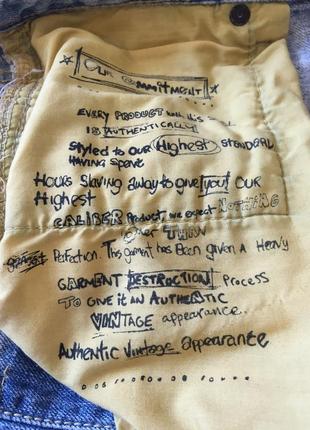 Our Commitment
EVERY PRODUCT with this
IS AUTHENTICALLY
Styled to OUR Highest STANDARD
HAVING SPENT
HOURS SLAVING away to give you! OUR
Highest
CALIBER Product, we expect NOTHING
THAN
Perfection. This garment has Been given A Heavy
GARMENT DESTRUCTION Process
TO GIVE it AN AUTHENTIC
VINTAGE appearance.
Authentic Vintage appearance